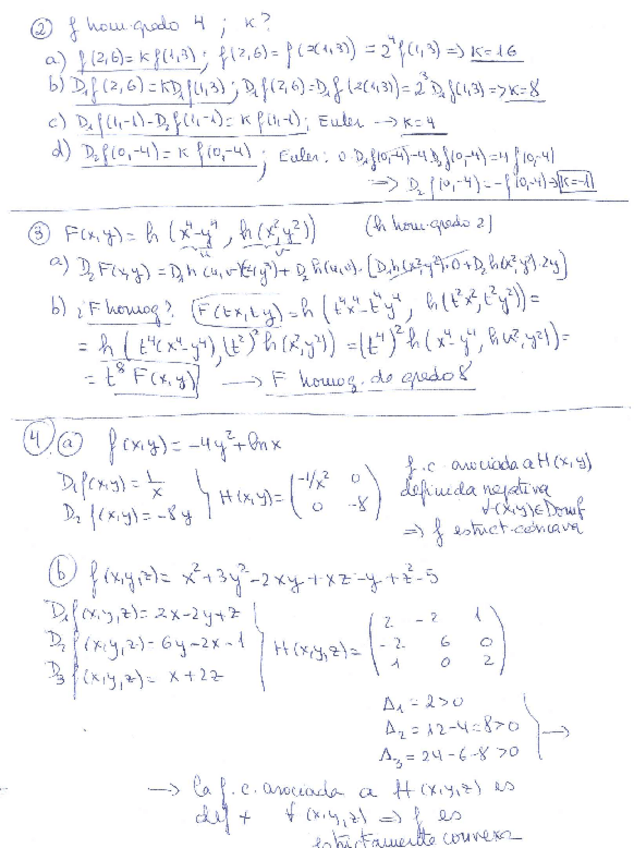 ② f hom. grado 4 ; k?
a) f(2,6)=k f(1,3); f(2,6)=f(2(1,3))=2⁴f(1,3) ⇒ k=16
b) D₁f(2,6)=kD₁f(1,3); D₁f(2,6)=D₁f(2(1,3))=2³D₁f(1,3) ⇒ k=8
c) D₁f(1,-1)-D₂f(1,-1)=k f(1,-1); Euler → k=4
d) D₂f(0,-4)=k f(0,-4); Euler: 0·D₁f(0,-4)-4D₂f(0,-4)=4f(0,-4)
⇒ D₂f(0,-4)=-f(0,-4) ⇒ k=-1
③ F(x,y)=h(x⁴-y⁴, h(x²,y²)) (h hom. grado 2)
u v
a) D₂F(x,y)=D₁h(u,v)(-4y³)+D₂h(u,v)·[D₁h(x²,y²)·0+D₂h(x²,y²)·2y]
b) ¿F homog? F(tx,ty)=h(t⁴x⁴-t⁴y⁴, h(t²x²,t²y²))=
=h(t⁴(x⁴-y⁴),(t²)²h(x²,y²))=(t⁴)²h(x⁴-y⁴,h(x²,y²))=
=t⁸F(x,y) → F homog. de grado 8
④ ⓐ f(x,y)=-4y²+ln x
D₁f(x,y)=1/x
D₂f(x,y)=-8y
H(x,y)=(-1/x² 0
0 -8)
f.c. asociada a H(x,y)
definida negativa
∀(x,y)∈Domf
⇒ f estrict. cóncava
ⓑ f(x,y,z)=x²+3y²-2xy+xz-y+z²-5
D₁f(x,y,z)=2x-2y+z
D₂f(x,y,z)=6y-2x-1
D₃f(x,y,z)=x+2z
H(x,y,z)=(2 -2 1
-2 6 0
1 0 2)
Δ₁=2>0
Δ₂=12-4=8>0
Δ₃=24-6-8>0 →
→ la f.c. asociada a H(x,y,z) es
def + ∀(x,y,z) ⇒ f es
estrictamente convexa